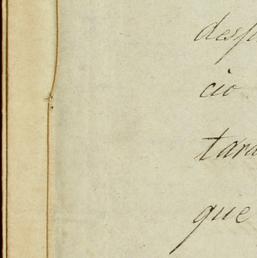 desp
cio
tara
que